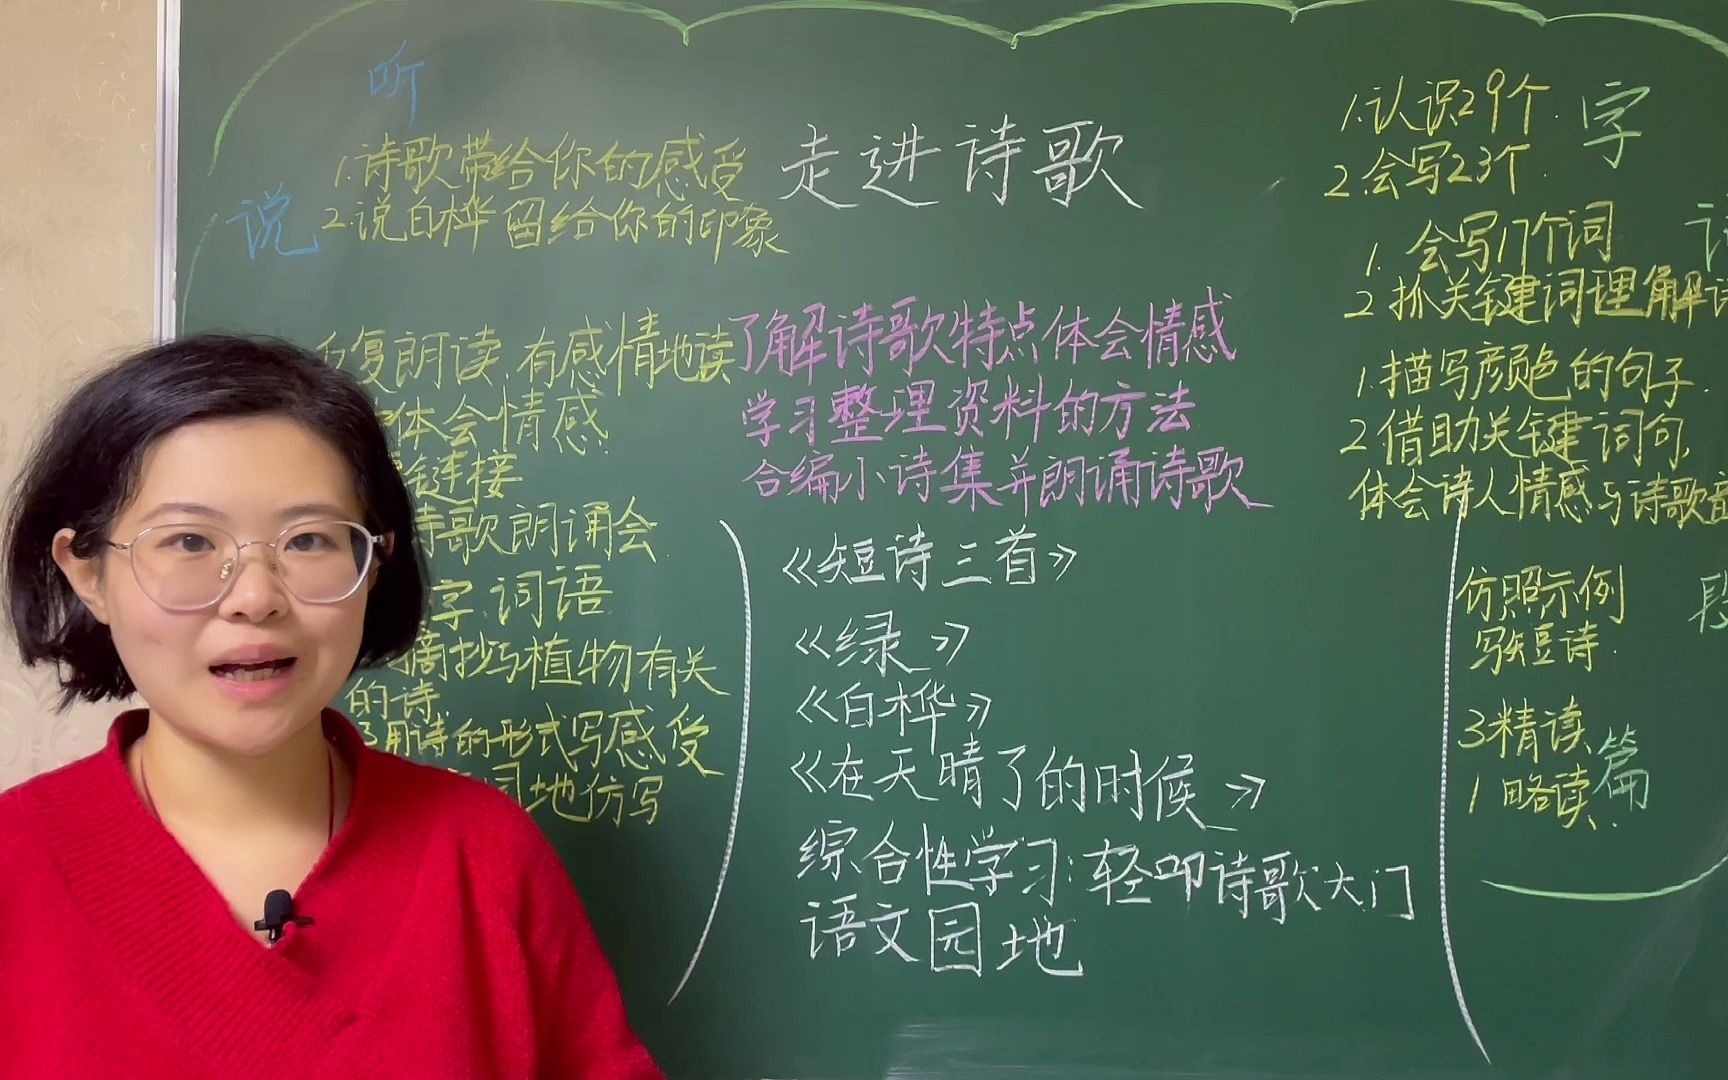 听
说
1.诗歌带给你的感受
2.说白桦留给你的印象
复朗读,有感情地读
体会情感
链接
诗歌朗诵会
字、词语
摘抄与植物有关
的诗.
3用诗的形式写感受
园地仿写
走进诗歌
了解诗歌特点体会情感
学习整理资料的方法
合编小诗集并朗诵诗歌
《短诗三首》
《绿》
《白桦》
《在天晴了的时候》
综合性学习:轻叩诗歌大门
语文园地
字
1.认识29个.
2.会写23个.
1.会写17个词
2抓关键词理解
1.描写颜色的句子.
2借助关键词句,
体会诗人情感与诗歌
段
仿照示例
写短诗.
篇
3精读
1略读.